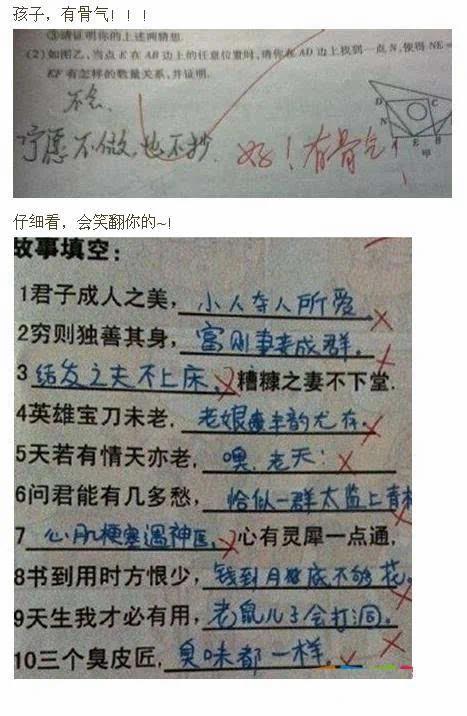 孩子，有骨气！！！
③请证明你的上述两猜想.
(2)如图乙,当点E在AB边上的任意位置时,请你在AD边上找到一点N,使得NE=
EF有怎样的数量关系,并证明.
不会.
宁愿不做,也不抄.
好！有骨气！
D
C
N
A
E
B
甲
仔细看，会笑翻你的~!
故事填空：
1君子成人之美，小人夺人所爱.
2穷则独善其身，富则妻妾成群.
3结发之夫不上床，糟糠之妻不下堂.
4英雄宝刀未老，老娘丰韵尤存.
5天若有情天亦老，噢,老天!
6问君能有几多愁，恰似一群太监上青楼
7心肌梗塞遇神医，心有灵犀一点通.
8书到用时方恨少，钱到月底不够花.
9天生我才必有用，老鼠儿子会打洞.
10三个臭皮匠，臭味都一样.